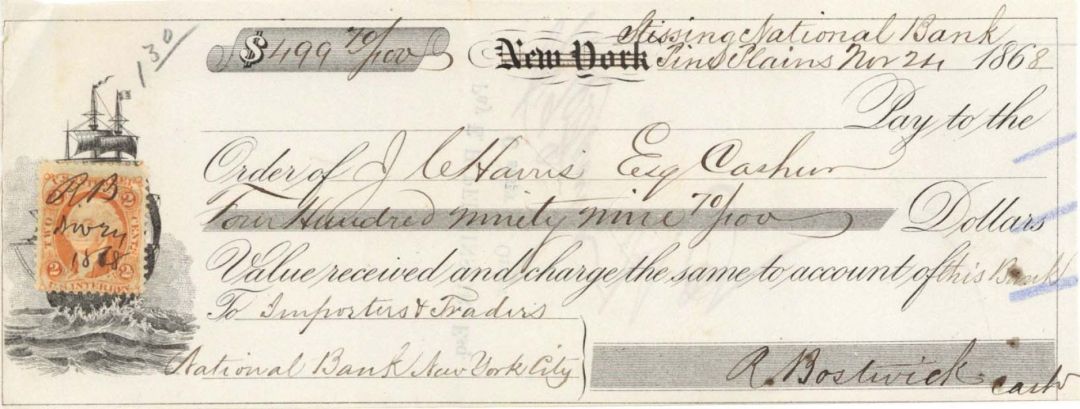 130
$499 70/100
Stissing National Bank
New York Pine Plains Nov 24 1868
Pay to the
Order of J C Harris Esq Cashier
Four Hundred ninety nine 70/100 Dollars
Value received and charge the same to account of this Bank
To Importers & Traders
National Bank New York City
R Bostwick cash
2 2
TWO CENTS
RB
Nov 24
1868
2 2
U.S. INTER. REV.